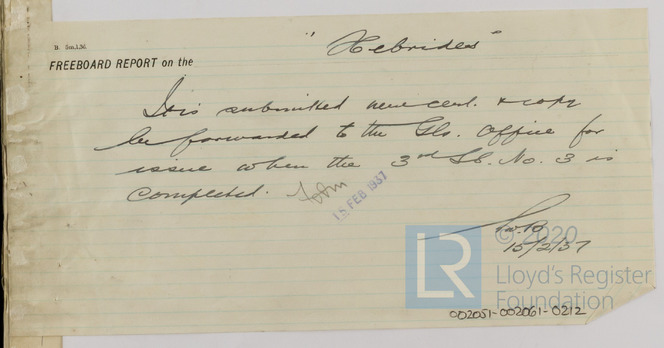 B. 5m.1.36.
"Hebrides"
FREEBOARD REPORT on the
It is submitted new cert. & copy
be forwarded to the Gls. Office for
issue when the 3rd SS. No. 3 is
completed.
15 FEB 1937
15/2/37
© 2020
LR Lloyd's Register
Foundation
002051-002061-0212